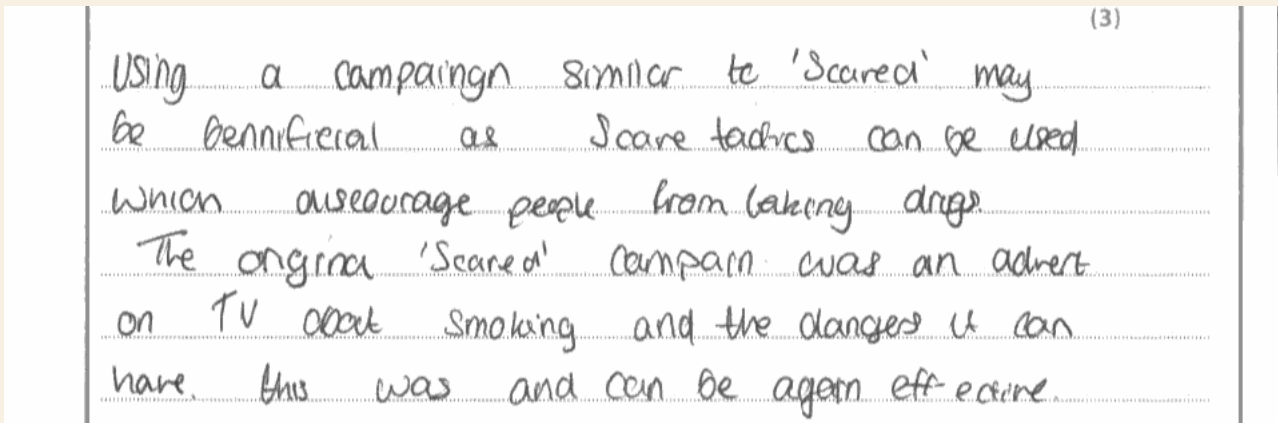 (3)
Using a campaingn similar to 'Scared' may
be bennificial as Scare tactics can be used
which discourage people from taking drugs.
The original 'Scared' campain was an advert
on TV about smoking and the dangers it can
have. this was and can be again effective.